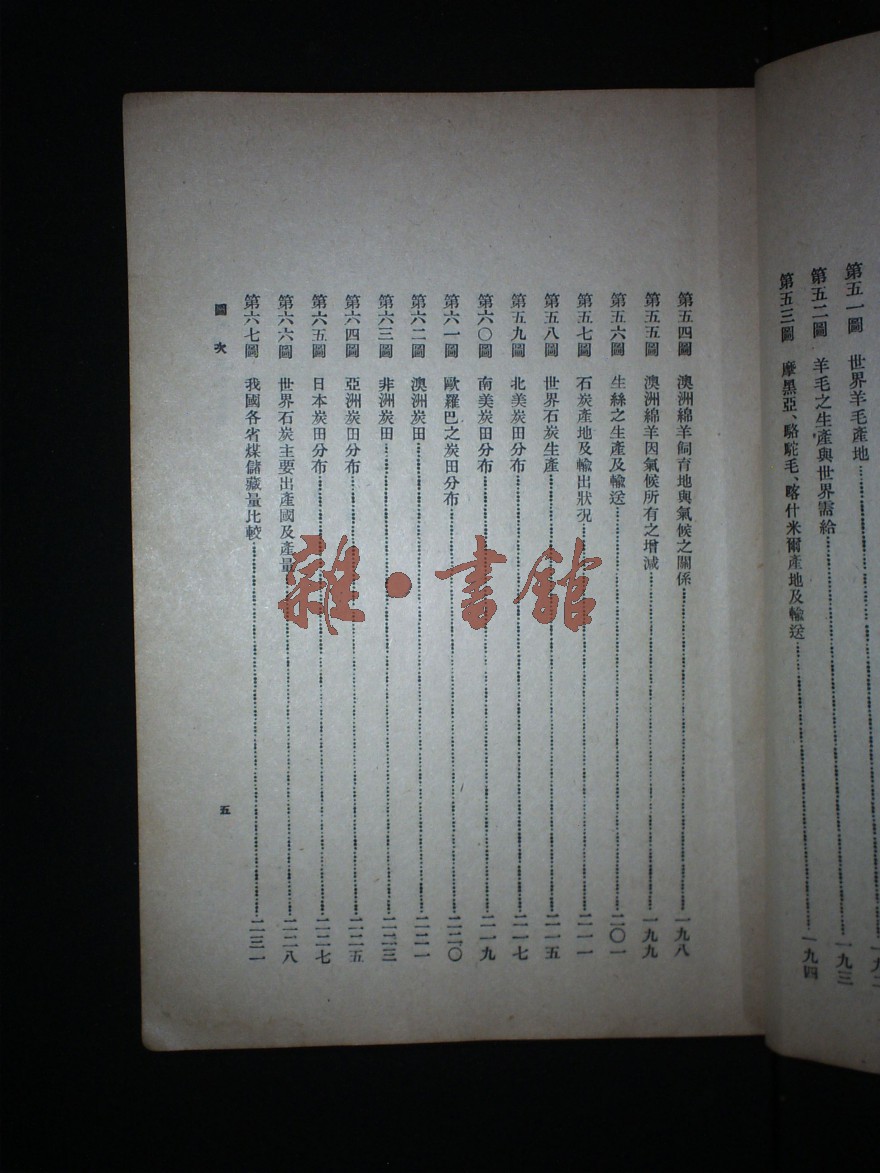 第五一圖　世界羊毛產地
第五二圖　羊毛之生產與世界需給……一九三
第五三圖　摩黑亞、駱駝毛、喀什米爾產地及輸送……一九四
第五四圖　澳洲綿羊飼育地與氣候之關係……一九八
第五五圖　澳洲綿羊因氣候所有之增減……一九九
第五六圖　生絲之生產及輸送……二〇一
第五七圖　石炭產地及輸出狀況……二一一
第五八圖　世界石炭生產……二一五
第五九圖　北美炭田分布……二一七
第六〇圖　南美炭田分布……二一九
第六一圖　歐羅巴之炭田分布……二二〇
第六二圖　澳洲炭田……二二一
第六三圖　非洲炭田……二二三
第六四圖　亞洲炭田分布……二二五
第六五圖　日本炭田分布……二二七
第六六圖　世界石炭主要出產國及產量……二二八
第六七圖　我國各省煤儲藏量比較……二三一
圖次　五
雜·書館